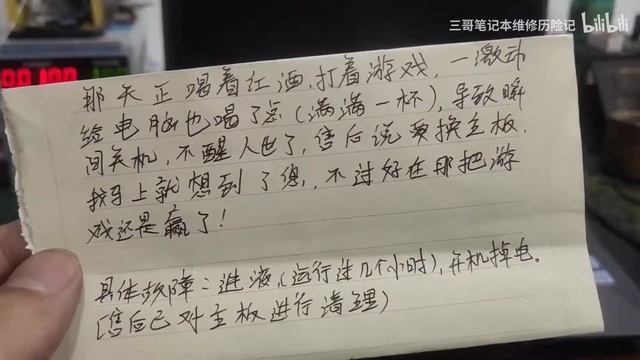 三哥笔记本维修历险记 bilibili
那天正喝着红酒,打着游戏,一激动
给电脑也喝了点(满满一杯),导致瞬
间关机,不醒人世了,售后说要换主板,
我马上就想到了您,不过好在那把游
戏还是赢了!
具体故障:进液,(运行过几个小时),开机掉电。
(售后已对主板进行清理)